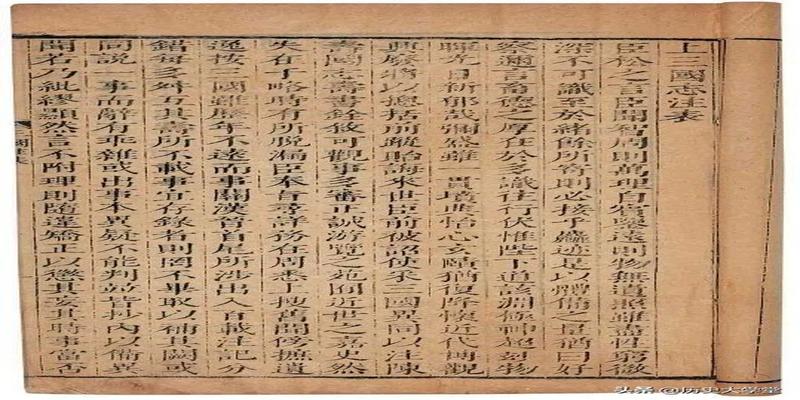 上三國志注表
臣松之言臣聞智周則萬理自賓鑒遠則物無遺照雖盡性窮微
深不可識至於緒餘所寄則必接乎麤迹是以體備之量猶曰好
察邇言畜德之厚在於多識往行伏惟陛下道該淵極神超妙物
暉光日新郁哉彌盛雖一貫墳典怡心玄賾猶復降懷近代博觀
興廢將以總括前蹤貽誨來世臣前被詔使采三國異同以注陳
壽國志壽書銓敘可觀事多審正誠游覽之苑囿近世之嘉史然
失在于略時有所脫漏臣奉旨尋詳務在周悉上搜舊聞傍摭遺
逸按三國雖歷年不遠而事關漢晉首尾所涉出入百載注記分
錯每多舛互其壽所不載事宜存錄者則罔不畢取以補其闕或
同說一事而辭有乖雜或出事本異疑不能判並皆抄內以備異
聞若乃紕繆顯然言不附理則隨違矯正以懲其妄其時事當否
头条 @历史大学堂